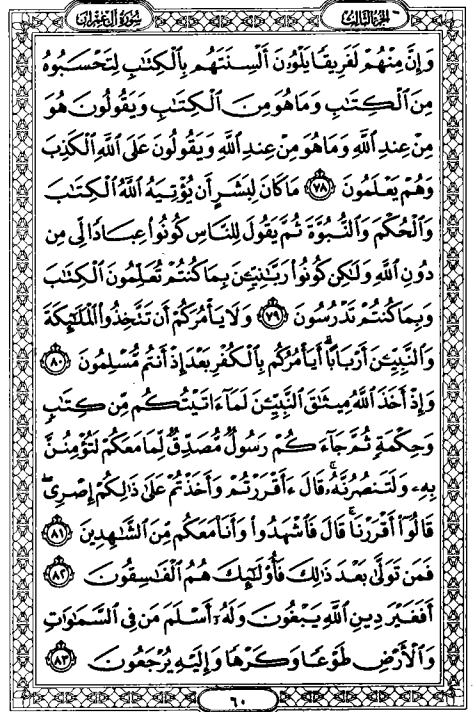 الجزء الثالث
سورة آل عمران
وَإِنَّ مِنْهُمْ لَفَرِيقًا يَلْوُۥنَ أَلْسِنَتَهُم بِالْكِتَٰبِ لِتَحْسَبُوهُ
مِنَ الْكِتَٰبِ وَمَا هُوَ مِنَ الْكِتَٰبِ وَيَقُولُونَ هُوَ
مِنْ عِندِ اللَّهِ وَمَا هُوَ مِنْ عِندِ اللَّهِ وَيَقُولُونَ عَلَى اللَّهِ الْكَذِبَ
وَهُمْ يَعْلَمُونَ ٧٨ مَا كَانَ لِبَشَرٍ أَن يُؤْتِيَهُ اللَّهُ الْكِتَٰبَ
وَالْحُكْمَ وَالنُّبُوَّةَ ثُمَّ يَقُولَ لِلنَّاسِ كُونُوا عِبَادًا لِّى مِن
دُونِ اللَّهِ وَلَٰكِن كُونُوا رَبَّٰنِيِّۦنَ بِمَا كُنتُمْ تُعَلِّمُونَ الْكِتَٰبَ
وَبِمَا كُنتُمْ تَدْرُسُونَ ٧٩ وَلَا يَأْمُرَكُمْ أَن تَتَّخِذُوا الْمَلَٰٓئِكَةَ
وَالنَّبِيِّۦنَ أَرْبَابًا أَيَأْمُرُكُم بِالْكُفْرِ بَعْدَ إِذْ أَنتُم مُّسْلِمُونَ ٨٠
وَإِذْ أَخَذَ اللَّهُ مِيثَٰقَ النَّبِيِّۦنَ لَمَآ ءَاتَيْتُكُم مِّن كِتَٰبٍ
وَحِكْمَةٍ ثُمَّ جَآءَكُمْ رَسُولٌ مُّصَدِّقٌ لِّمَا مَعَكُمْ لَتُؤْمِنُنَّ
بِهِۦ وَلَتَنصُرُنَّهُۥ قَالَ ءَأَقْرَرْتُمْ وَأَخَذْتُمْ عَلَىٰ ذَٰلِكُمْ إِصْرِى
قَالُوٓا أَقْرَرْنَا قَالَ فَاشْهَدُوا وَأَنَا مَعَكُم مِّنَ الشَّٰهِدِينَ ٨١
فَمَن تَوَلَّىٰ بَعْدَ ذَٰلِكَ فَأُولَٰٓئِكَ هُمُ الْفَٰسِقُونَ ٨٢
أَفَغَيْرَ دِينِ اللَّهِ يَبْغُونَ وَلَهُۥٓ أَسْلَمَ مَن فِى السَّمَٰوَٰتِ
وَالْأَرْضِ طَوْعًا وَكَرْهًا وَإِلَيْهِ يُرْجَعُونَ ٨٣
٦٠